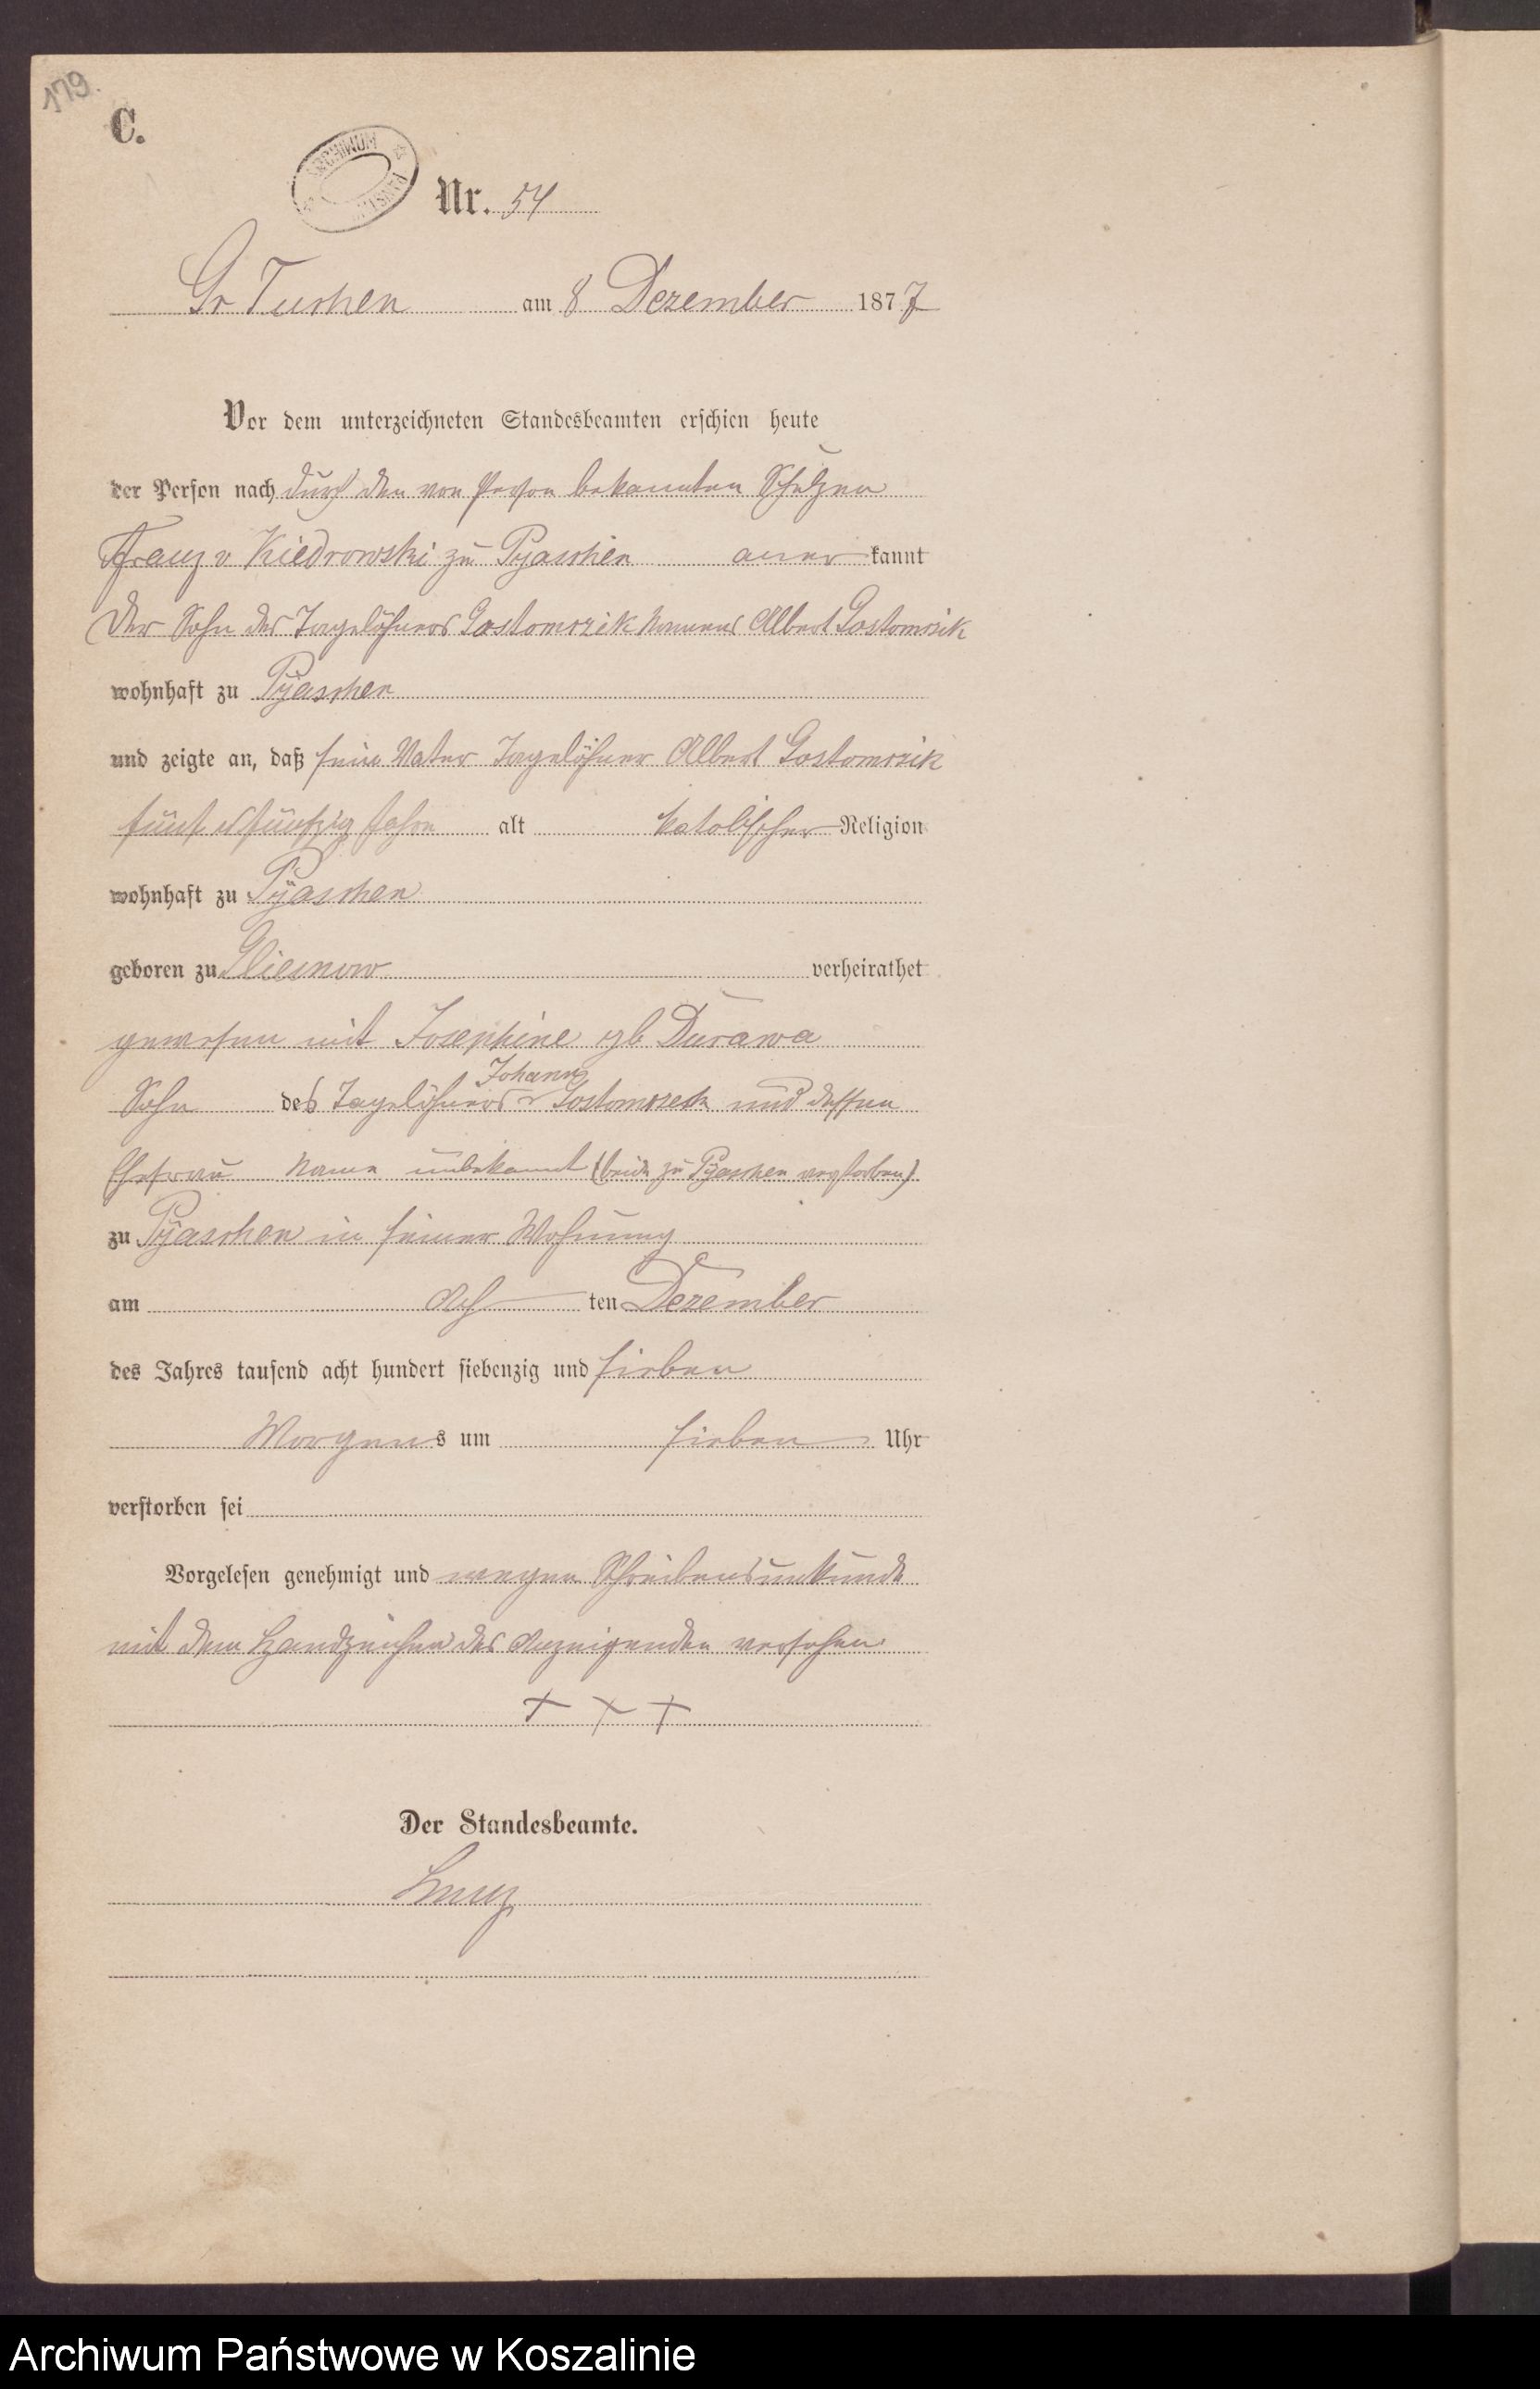 179.
C.
ARCHIWUM
Nr. 54
Gr Tuchen am 8 Dezember 1877
Vor dem unterzeichneten Standesbeamten erschien heute
der Person nach durch den von Person bekannten Schulzen
Franz v Kiedrowski zu Pyaschen aner kannt
der Sohn des Tagelöhners Gostomczik Namens Albert Gostomczik
wohnhaft zu Pyaschen
und zeigte an, daß sein Vater Tagelöhner Albert Gostomczik
fünf u fünfzig Jahre alt katolischer Religion
wohnhaft zu Pyaschen
geboren zu Gliesnow verheirathet
gewesen mit Josephine geb Durawa
Johann
Sohn des Tagelöhners Gostomczek und dessen
Ehefrau Name unbekannt (beide zu Pyaschen verstorben)
zu Pyaschen in seiner Wohnung
am ach ten Dezember
des Jahres tausend acht hundert siebenzig und sieben
Morgens um sieben Uhr
verstorben sei
Vorgelesen genehmigt und wegen Schreibensunkunde
mit dem Handzeichen des Anzeigenden versehen
+ + +
Der Standesbeamte.
Archiwum Państwowe w Koszalinie